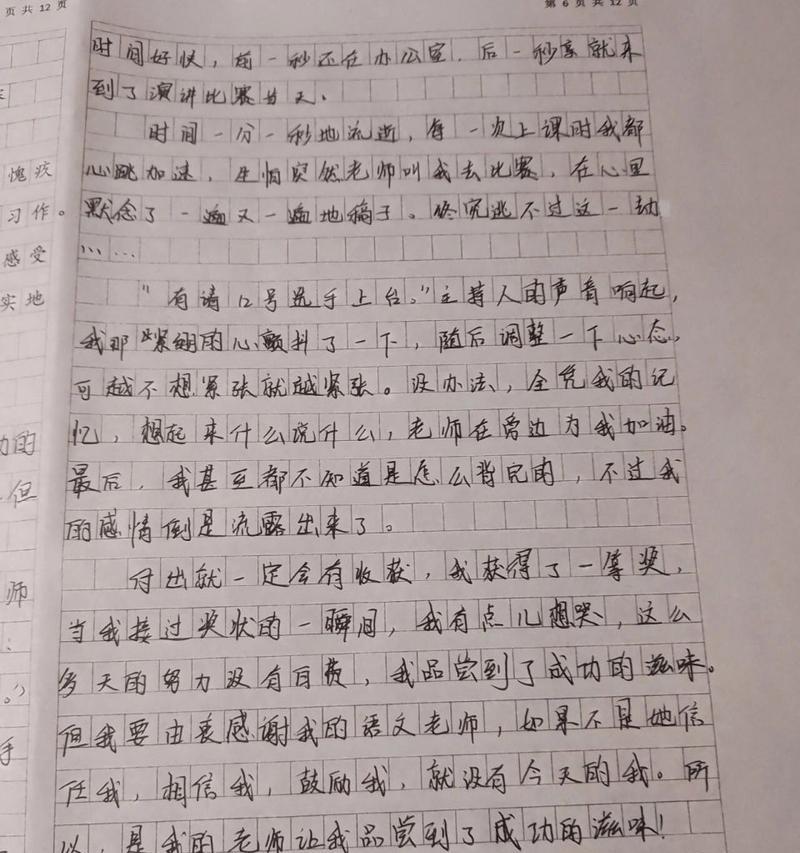 页 共 12 页
第 6 页 共 12 页
愧疚
习作。
感受
实地
动的
但
师
：
。）
手
时间好快，前一秒还在办公室，后一秒就来
到了演讲比赛当天。
时间一分一秒地流逝，每一次上课时我都
心跳加速，生怕突然老师叫我去比赛，在心里
默念了一遍又一遍地稿子。终究逃不过这一劫
……
“有请12号选手上台。”主持人的声音响起，
我那紧绷的心颤抖了一下，随后调整一下心态，
可越不想紧张就越紧张。没办法，全凭我的记
忆，想起来什么说什么，老师在旁边为我加油。
最后，我甚至都不知道是怎么背完的，不过我
的感情倒是流露出来了。
付出就一定会有收获，我获得了一等奖，
当我接过奖状的一瞬间，我有点儿想哭，这么
多天的努力没有白费，我品尝到了成功的滋味。
但我要由衷感谢我的语文老师，如果不是她信
任我，相信我，鼓励我，就没有今天的我。所
以，是我的老师让我品尝到了成功的滋味！